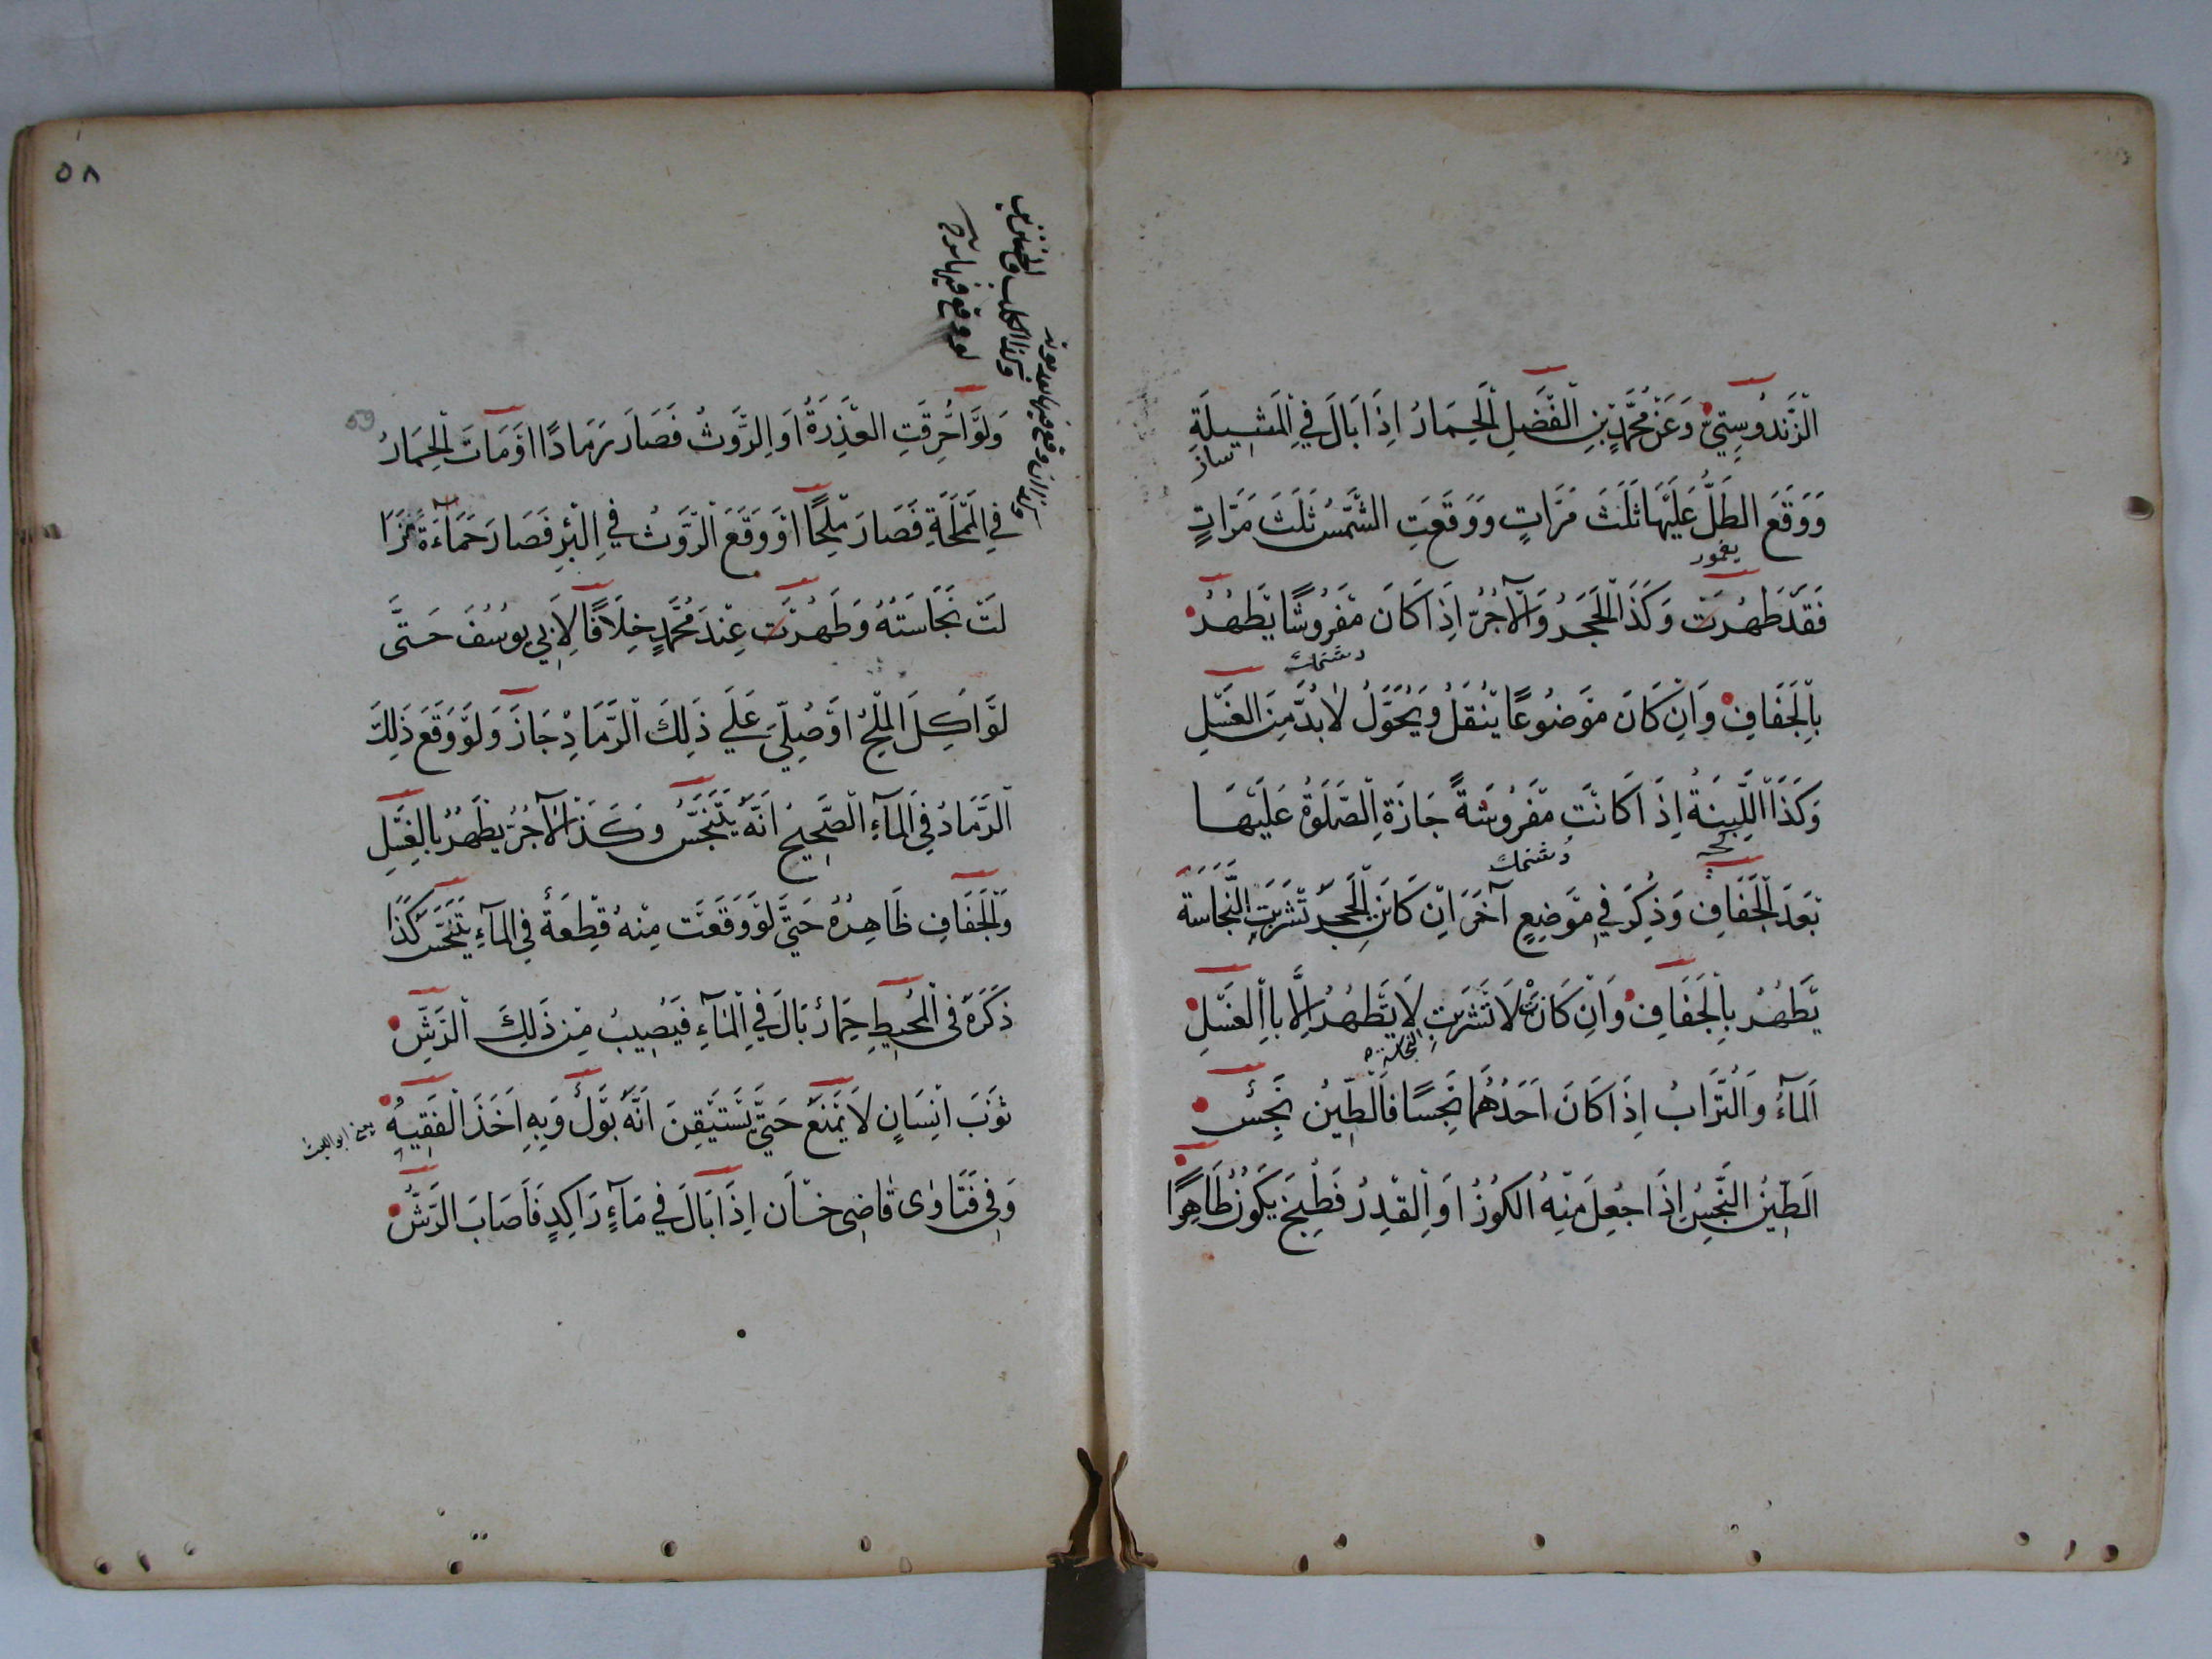 الزَّنْدُوسِتِيِّ وَعَنْ مُحَمَّدِ بْنِ الْفَضْلِ الْحِمَارُ اِذَا بَالَ فِي الْمَثِيلَةِ
وَوَقَعَ الطَّلُّ عَلَيْهَا ثَلٰثَ مَرَّاتٍ وَوَقَعَتِ الشَّمْسُ ثَلٰثَ مَرَّاتٍ
يغمور
فَقَدْ طَهُرَتْ وَكَذَا الْحَجَرُ وَالْآجُرُّ اِذَا كَانَ مَفْرُوشًا يَطْهُرُ
بِالْجَفَافِ وَاِنْ كَانَ مَوْضُوعًا يُنْقَلُ وَيُحَوَّلُ لَابُدَّ مِنَ الْغَسْلِ
وَكَذَا اللَّبِنَةُ اِذَا كَانَتْ مَفْرُوشَةً جَازَةِ الصَّلٰوةُ عَلَيْهَا
بَعْدَ الْجَفَافِ وَذُكِرَ فِي مَوْضِعٍ آخَرَ اِنْ كَانَ الْحَجَرُ تَشَرَّبَتِ النَّجَاسَةَ
يَطْهُرُ بِالْجَفَافِ وَاِنْ كَانَتْ لَا تَشَرَّبَتِ لَا يَطْهُرُ اِلَّا بِاالْغَسْلِ
النجاسة
اَلْمَآءُ وَالتُّرَابُ اِذَا كَانَ اَحَدُهُمَا نَجِسًا فَالطِّينُ نَجِسٌ
الطِّينُ النَّجِسُ اِذَا جُعِلَ مِنْهُ الْكُوزُ اَوِ الْقِدْرُ فَطُبِخَ يَكُونُ طَاهِرًا
٥٨
وكذا الكلب والخنزير
لو وقع فيها
59
وَلَوْ اُحْرِقَتِ الْعَذِرَةُ اَوِ الرَّوْثُ فَصَارَ رَمَادًا اَوْ مَاتَ الْحِمَارُ
فِي الْمَمْلَحَةِ فَصَارَ مِلْحًا اَوْ وَقَعَ الرَّوْثُ فِي الْبِئْرِ فَصَارَ حَمَاَءَةً زَا
لَتْ نَجَاسَتُهُ وَطَهُرَتْ عِنْدَ مُحَمَّدٍ خِلَافًا لِاَبِي يُوسُفَ حَتَّى
لَوْ اُكِلَ الْمِلْحُ اَوْ صُلِّيَ عَلَى ذٰلِكَ الرَّمَادِ جَازَ وَلَوْ وَقَعَ ذٰلِكَ
الرَّمَادُ فِي الْمَآءِ الصَّحِيحُ اَنَّهُ يَتَنَجَّسُ وَكَذَا الْآجُرُّ يَطْهُرُ بِالْغَسْلِ
وَالْجَفَافِ ظَاهِرُهُ حَتَّى لَوْ وَقَعَتْ مِنْهُ قِطْعَةٌ فِي الْمَآءِ يَتَنَجَّسُ كَذَا
ذَكَرَهُ فِي الْمُحِيطِ حِمَارٌ بَالَ فِي الْمَآءِ فَيُصِيبُ مِنْ ذٰلِكَ الرَّشِّ
ثَوْبَ اِنْسَانٍ لَا يَمْنَعُ حَتَّى يَسْتَيْقِنَ اَنَّهُ بَوْلٌ وَبِهِ اَخَذَ الْفَقِيهُ
يعنى ابو الليث
وَفِي فَتَاوٰى قَاضِي خَان اِذَا بَالَ فِي مَآءٍ رَاكِدٍ فَاَصَابَ الرَّشُّ